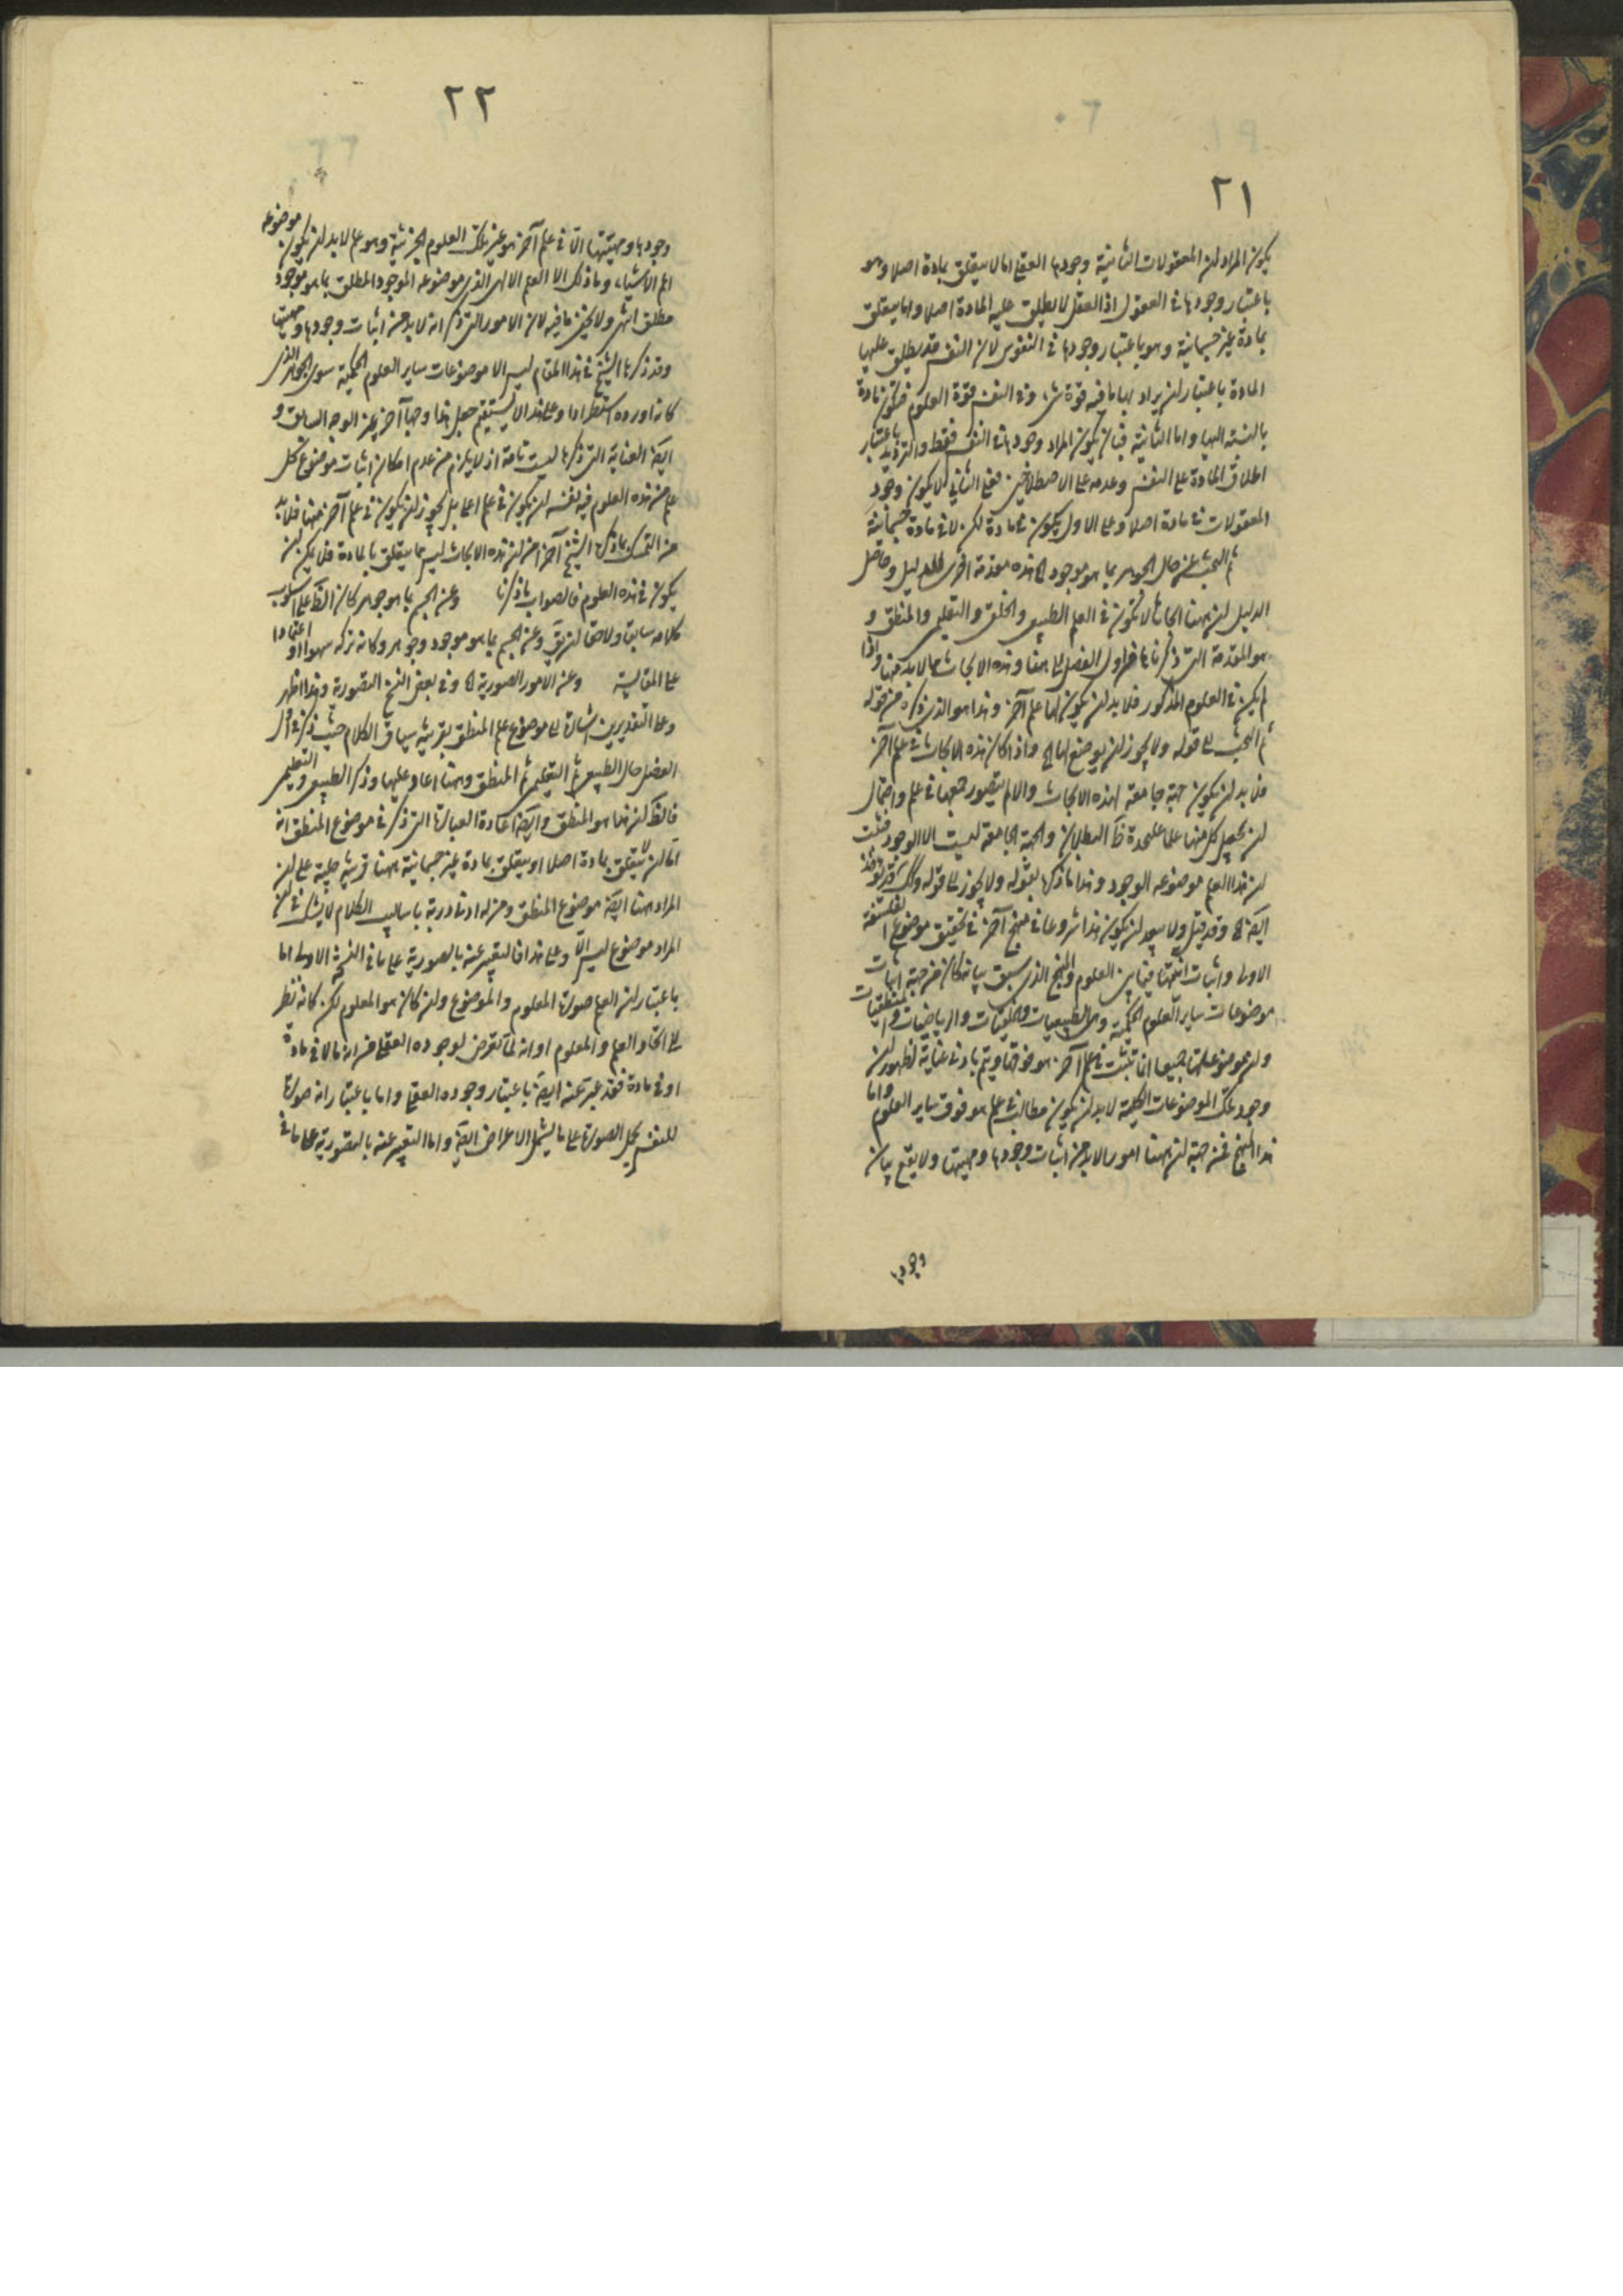 ٢١
يكون المراد ان المعقولات الثانية وجودها العقلى اما لا يتعلق بمادة اصلا وهو
باعتبار وجودها فى العقول اذ العقل لا يطلق عليه المادة اصلا واما يتعلق
بمادة غير جسمانية وهو باعتبار وجودها فى النفوس لان النفس قد يطلق عليها
المادة باعتبار ان يراد بها ما فيه قوة شىء وفى النفس قوة العلوم فتكون مادة
بالنسبة اليها واما الثانية فبان يكون المراد وجودها فى النفس فقط والترديد باعتبار
اطلاق المادة على النفس وعدمه على الاصطلاحين فعلى الثانى لا يكون وجود
المعقولات فى مادة اصلا وعلى الاول يكون فى مادة لكن لا فى مادة جسمانية
ثم البحث عن حال الجوهر بما هو موجود الخ هذه مقدمة اخرى للدليل وحاصل
الدليل ان ههنا ابحاثا لا تكون فى العلم الطبيعى والخلقى والتعليمى والمنطقى و
هو المقدمة التى ذكرناها فى اول الفصل الى ههنا وهذه الابحاث مما لابد منها واذا
لم يكن فى العلوم المذكور فلابد ان يكون لها علم آخر وهذا هو الذى ذكره من قوله
ثم البحث الى قوله ولا يجوز ان يوضع لها الخ واذا كان هذه الابحاث فى علم آخر
فلابد ان يكون جهة جامعة لهذه الابحاث والا لم يتصور جمعها فى علم واحتمال
ان يجعل كل منها علما عليحدة ظ البطلان والجهة الجامعة ليست الا الوجود فثبت
ان هذا العلم موضوعه الوجود وهذا ما ذكره بقوله ولا يجوز الى قوله وكذلك قد يوجد
ايضا الخ وقد قيل ولا يبعد ان يكون هذا شروعا فى منهج آخر فى تحقيق موضوع الفلسفة
الاولى واثبات انيتها فيما بين العلوم والمنهج الذى سبق بيانه كان من جهة اثبات
موضوعات ساير العلوم الحكمية وهى الطبيعيات والخلقيات والرياضيات والمنطقيات
وان موضوعاتها جميعا انما تثبت فى علم آخر هو فوقها ويتم بادنى عناية لظهور ان
وجود تلك الموضوعات الكلية لابد ان يكون مطالب فى علم هو فوق ساير العلوم واما
هذا المنهج فمن جهة ان ههنا امورا لابد من اثبات وجودها ومهيتها ولا يقع بيان
وجودها
٢٢
وجودها ومهيتها الا فى علم آخر هو غير تلك العلوم الجزئية وهو علم لابد ان يكون موضوعه
اعم الاشياء وما ذلك الا العلم الالهى الذى موضوعه الموجود المطلق بما هو موجود
مطلق انتهى ولا يخفى ما فيه لان الامور التى ذكر انه لابد من اثبات وجودها ومهيتها
وقد ذكرها الشيخ فى هذا المقام ليس الا موضوعات ساير العلوم الحكمية سوى الجوهر الذى
كانه اورده استطرادا وعلى هذا لا يستقيم جعل هذا وجها آخر غير الوجه السابق و
ايضا العناية التى ذكرها ليست تامة اذ لا يلزم من عدم امكان اثبات موضوع كل
علم من هذه العلوم فيه نفسه ان يكون فى علم اعلى بل يجوز ان يكون فى علم آخر منها فلابد
من التمسك بما ذكره الشيخ آخرا من ان هذه الابحاث ليس مما يتعلق بالمادة فلم يمكن ان
يكون فى هذه العلوم فالصواب ما ذكرنا وعن الجسم بما هو جوهر كان الظ على اسلوب
كلامه سابقا ولاحقا ان يق وعن الجسم بما هو موجود وجوهر وكانه تركه سهوا او اعتمادا
على المقايسة وعن الامور الصورية الخ وفى بعض النسخ التصورية وهذا اظهر
وعلى التقديرين اشارة الى موضوع علم المنطق بقرينة سياق الكلام حيث ذكر فى اول
الفصل حال الطبيعى ثم التعليمى ثم المنطقى وههنا اعاد عليها وذكر الطبيعى والتعليمى
فالظ ان هذا هو المنطق وايضا اعادة العبارة التى ذكر فى موضوع المنطق انه
اما ان لا يتعلق بمادة اصلا او يتعلق بمادة غير جسمانية ههنا قرينة جلية على ان
المراد ههنا ايضا موضوع المنطق ومن له ادنى دربة باساليب الكلام لا يشك فى ان
المراد موضوع ليس الا وعلى هذا فالتعبير عنه بالصورية على ما فى النسخة الاولى اما
باعتبار ان العلم صورة المعلوم والموضوع وان كان هو المعلوم لكن كانه نظر
الى اتحاد العلم والمعلوم او انه لما تعرض لوجوده العقلى من انه لا فى مادة
او فى مادة فقد عبر عنه ايضا باعتبار وجوده العقلى واما باعتبار انه صورة
للنفس بحمل الصورة على ما يشمل الاعراض ايضا واما التعبير عنه بالتصورية على ما فى